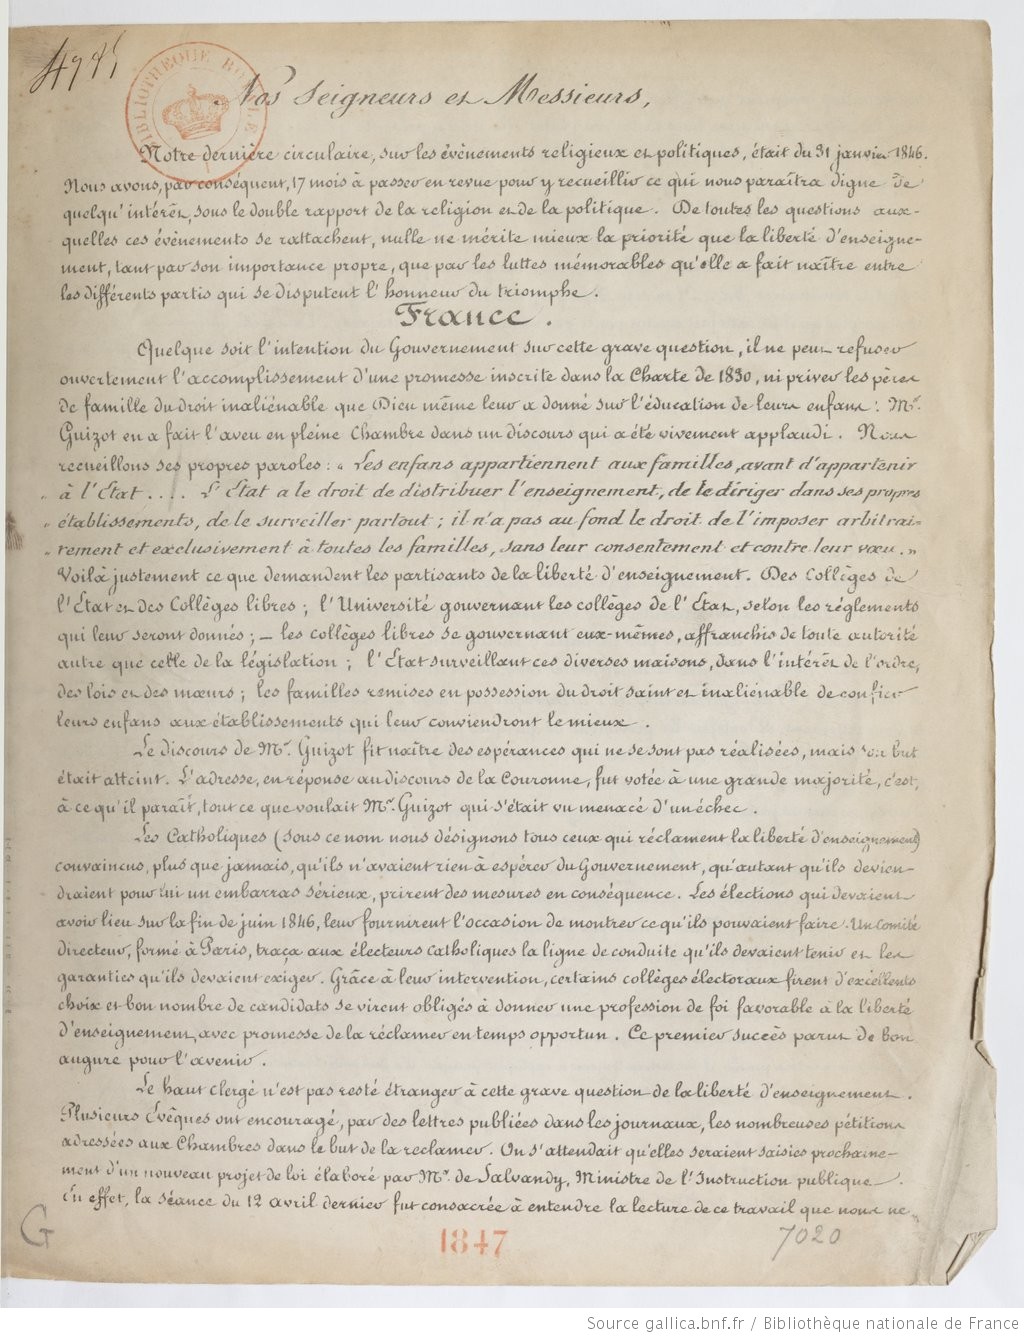 4795
BIBLIOTHEQUE ROYALE
Nos Seigneurs et Messieurs,
Notre dernière circulaire, sur les évènements religieux et politiques, était du 31 janvier 1846.
Nous avons, par conséquent, 17 mois à passer en revue pour y recueillir ce qui nous paraîtra digne de
quelqu'intérêt, sous le double rapport de la religion et de la politique. De toutes les questions aux-
quelles ces évènements se rattachent, nulle ne mérite mieux la priorité que la liberté d'enseigne-
ment, tant par son importance propre, que par les luttes mémorables qu'elle a fait naître entre
les différents partis qui se disputent l'honneur du triomphe.
France.
Quelque soit l'intention du Gouvernement sur cette grave question, il ne peut refuser
ouvertement l'accomplissement d'une promesse inscrite dans la Charte de 1830, ni priver les pères
de famille du droit inaliénable que Dieu même leur a donné sur l'éducation de leurs enfans. Mr.
Guizot en a fait l'aveu en pleine Chambre dans un discours qui a été vivement applaudi. Nous
recueillons ses propres paroles : « Les enfans appartiennent aux familles, avant d'appartenir
« à l'Etat .... L'Etat a le droit de distribuer l'enseignement, de le diriger dans ses propres
« établissements, de le surveiller partout ; il n'a pas au fond le droit de l'imposer arbitrai-
« rement et exclusivement à toutes les familles, sans leur consentement et contre leur vœu. »
Voilà justement ce que demandent les partisants de la liberté d'enseignement. Des Collèges de
l'Etat et des Collèges libres ; l'Université gouvernant les collèges de l'Etat, selon les réglements
qui leur seront donnés ; — les collèges libres se gouvernant eux-mêmes, affranchis de toute autorité
autre que celle de la législation ; l'Etat surveillant ces diverses maisons, dans l'intérêt de l'ordre,
des lois et des mœurs ; les familles remises en possession du droit saint et inaliénable de confier
leurs enfans aux établissements qui leur conviendront le mieux.
Le discours de Mr. Guizot fit naître des espérances qui ne se sont pas réalisées, mais son but
était atteint. L'adresse, en réponse au discours de la Couronne, fut votée à une grande majorité, c'est,
à ce qu'il paraît, tout ce que voulait Mr. Guizot qui s'était vu menacé d'un échec.
Les Catholiques (sous ce nom nous désignons tous ceux qui réclament la liberté d'enseignement)
convaincus, plus que jamais, qu'ils n'avaient rien à espérer du Gouvernement, qu'autant qu'ils devien-
draient pour lui un embarras sérieux, prirent des mesures en conséquence. Les élections qui devaient
avoir lieu sur la fin de juin 1846, leur fournirent l'occasion de montrer ce qu'ils pouvaient faire. Un Comité
directeur, formé à Paris, traça aux électeurs catholiques la ligne de conduite qu'ils devaient tenir et les
garanties qu'ils devaient exiger. Grâce à leur intervention, certains collèges électoraux firent d'excellents
choix et bon nombre de candidats se virent obligés à donner une profession de foi favorable à la liberté
d'enseignement, avec promesse de la réclamer en temps opportun. Ce premier succès parut de bon
augure pour l'avenir.
Le haut clergé n'est pas resté étranger à cette grave question de la liberté d'enseignement.
Plusieurs Evêques ont encouragé, par des lettres publiées dans les journaux, les nombreuses pétitions
adressées aux Chambres dans le but de la réclamer. On s'attendait qu'elles seraient saisies prochaine-
ment d'un nouveau projet de loi élaboré par Mr. de Salvandy, Ministre de l'Instruction publique.
En effet, la séance du 12 avril dernier fut consacrée à entendre la lecture de ce travail que nous ne
G
1847
7020
Source gallica.bnf.fr / Bibliothèque nationale de France